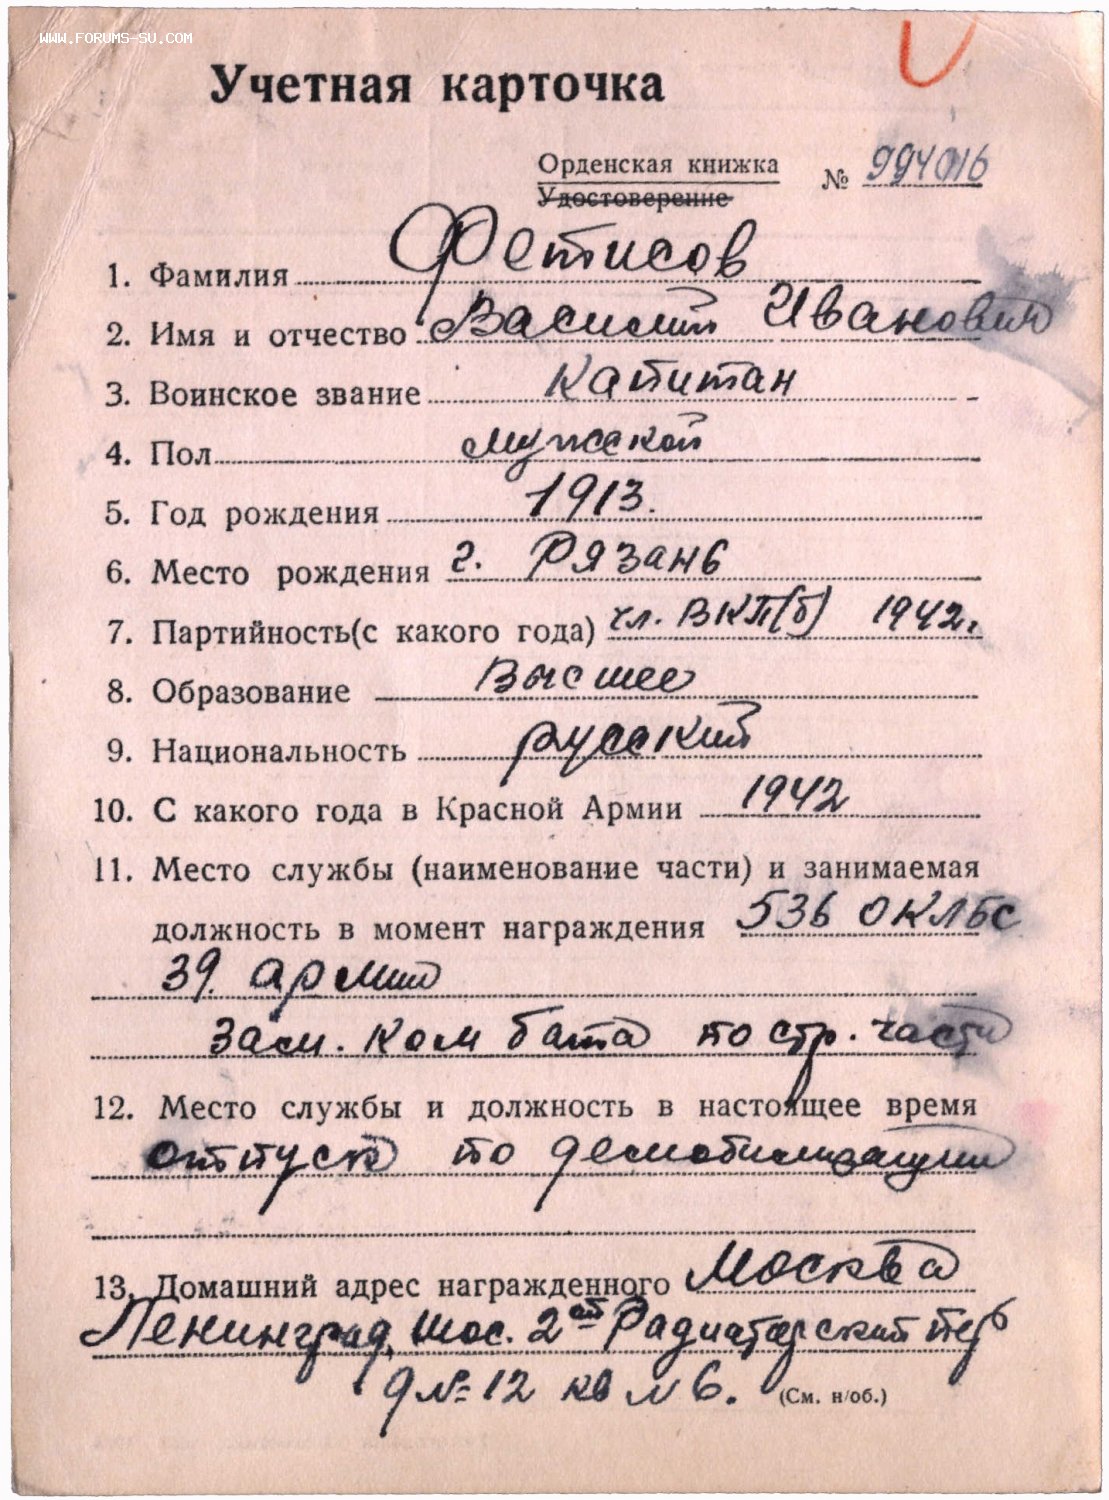 WWW.FORUMS-SU.COM
Учетная карточка
Орденская книжка № 994016
Удостоверение
1. Фамилия Фетисов
2. Имя и отчество Василий Иванович
3. Воинское звание Капитан
4. Пол мужской
5. Год рождения 1913.
6. Место рождения г. Рязань
7. Партийность(с какого года) чл. ВКП(б) 1942г.
8. Образование Высшее
9. Национальность русский
10. С какого года в Красной Армии 1942
11. Место службы (наименование части) и занимаемая
должность в момент награждения 536 ОКЛБС
39. армии
Зам. Ком бата по стр. части
12. Место службы и должность в настоящее время
отпуск по демобилизации
13. Домашний адрес награжденного Москва
Ленинград. шос. 2ой Радиаторский пер
д№12 кв №6. (См. н/об.)